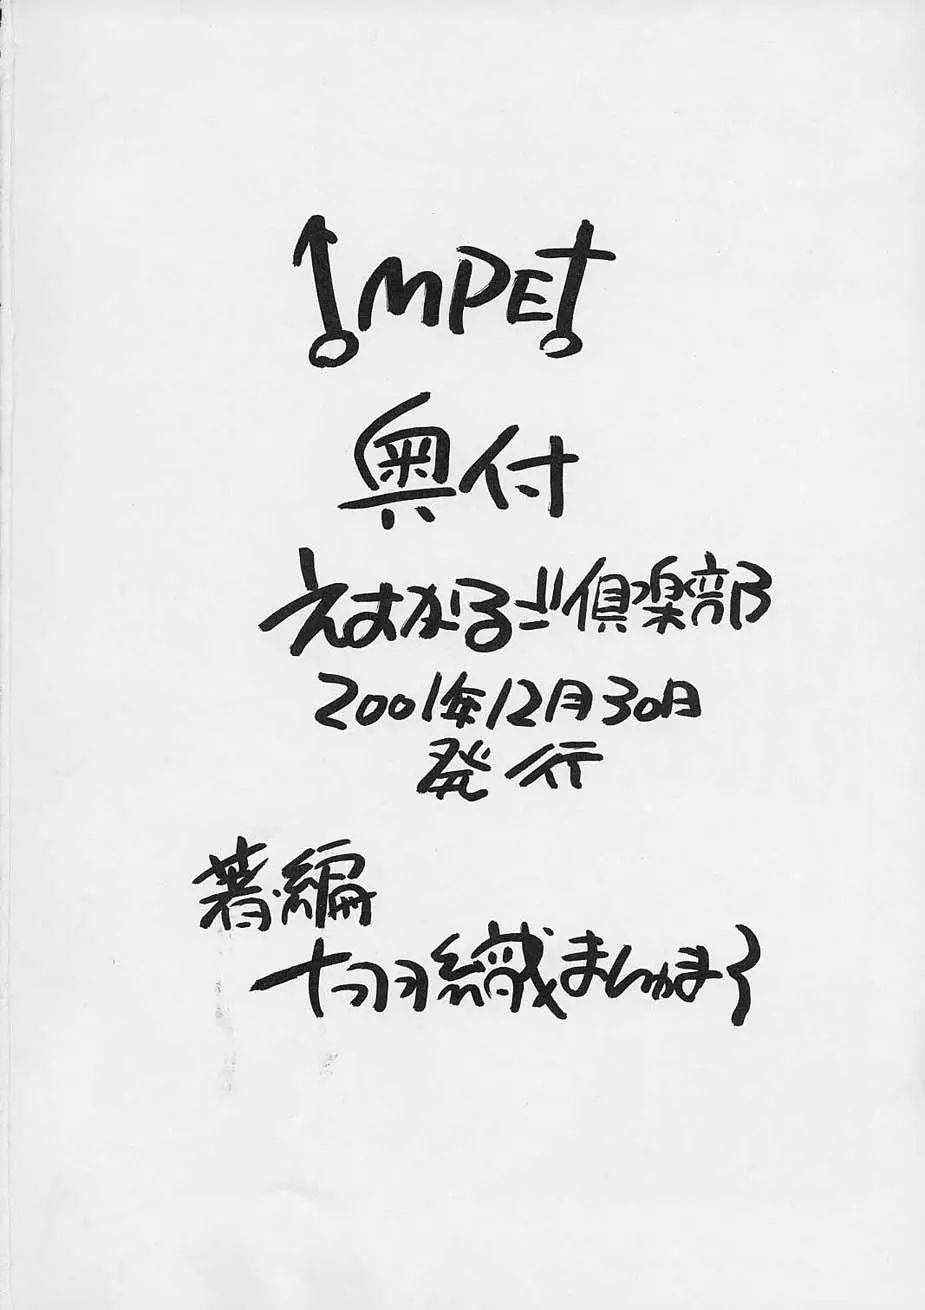 IMPET
奥付
えすかる!!倶楽部
2001年12月30日
発行
著・編
十羽織まんまる